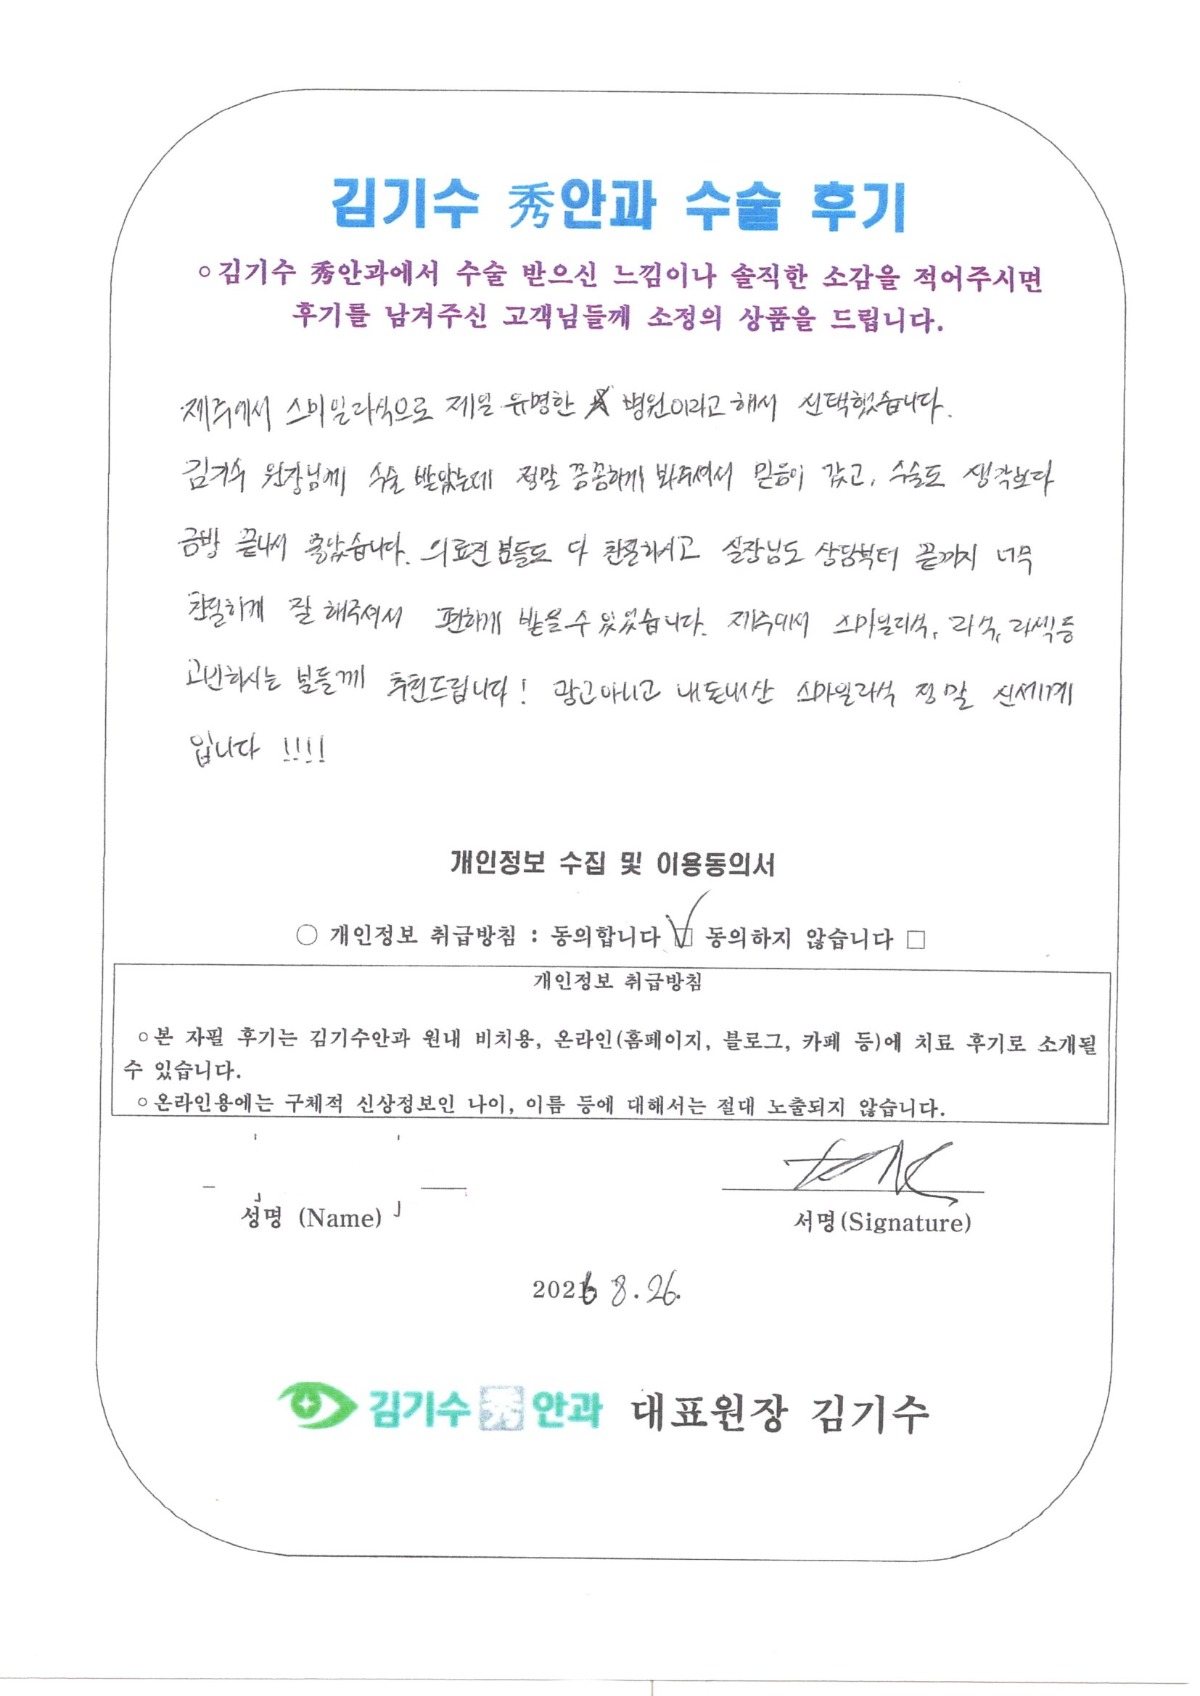 김기수 秀안과 수술 후기
○김기수 秀안과에서 수술 받으신 느낌이나 솔직한 소감을 적어주시면
후기를 남겨주신 고객님들께 소정의 상품을 드립니다.
제주에서 스마일라식으로 제일 유명한 병원이라고 해서 선택했습니다.
김기수 원장님께 수술 받았는데 정말 꼼꼼하게 봐주셔서 믿음이 갔고, 수술도 생각보다
금방 끝나서 좋았습니다. 의료진 분들도 다 친절하시고 실장님도 상담부터 끝까지 너무
친절하게 잘 해주셔서 편하게 받을 수 있었습니다. 제주에서 스마일라식, 라식, 라섹 등
고민하시는 분들께 추천드립니다! 광고아니고 내돈내산 스마일라식 정말 신세계
입니다 !!!!
개인정보 수집 및 이용동의서
○ 개인정보 취급방침 : 동의합니다 ☑ 동의하지 않습니다 □
개인정보 취급방침
○본 자필 후기는 김기수안과 원내 비치용, 온라인(홈페이지, 블로그, 카페 등)에 치료 후기로 소개될
수 있습니다.
○온라인용에는 구체적 신상정보인 나이, 이름 등에 대해서는 절대 노출되지 않습니다.
성명 (Name)
서명(Signature)
2026 8. 26.
김기수 秀 안과 대표원장 김기수